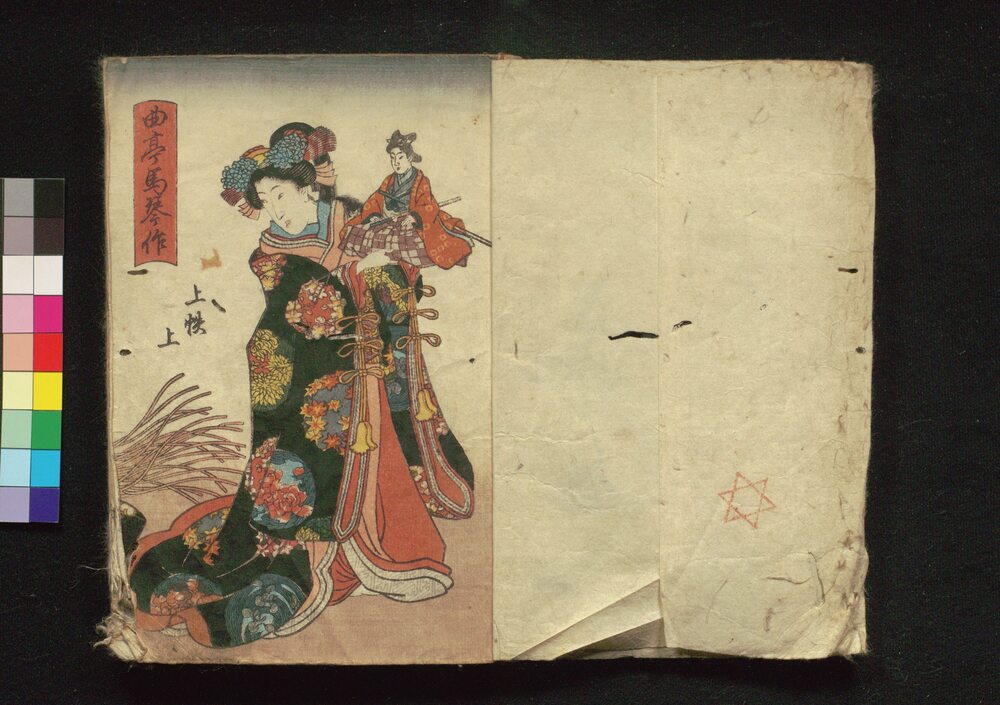 曲亭馬琴作
上帙
上